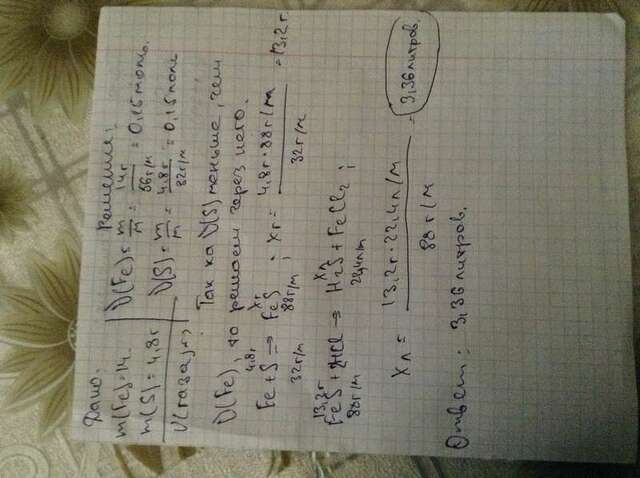 Дано:
m(Fe)=14
m(S)=4,8г
V(газа)-?
Решение:
ν(Fe)= m/M = 14г/56г/м = 0,25моль.
ν(S)= m/M = 4,8г/32г/м = 0,15моль
Так ка ν(S) меньше, чем
ν(Fe), то решаем через него.
4,8г xг
Fe+S → FeS ; xг= 4,8г·88г/м / 32г/м =13,2г.
32г/м 88г/м
13,2г xл
FeS+2HCl → H₂S+FeCl₂ ;
88г/м 22,4л/м
xл= 13,2г·22,4л/м / 88г/м = 3,36литров.
Ответ: 3,36литров.